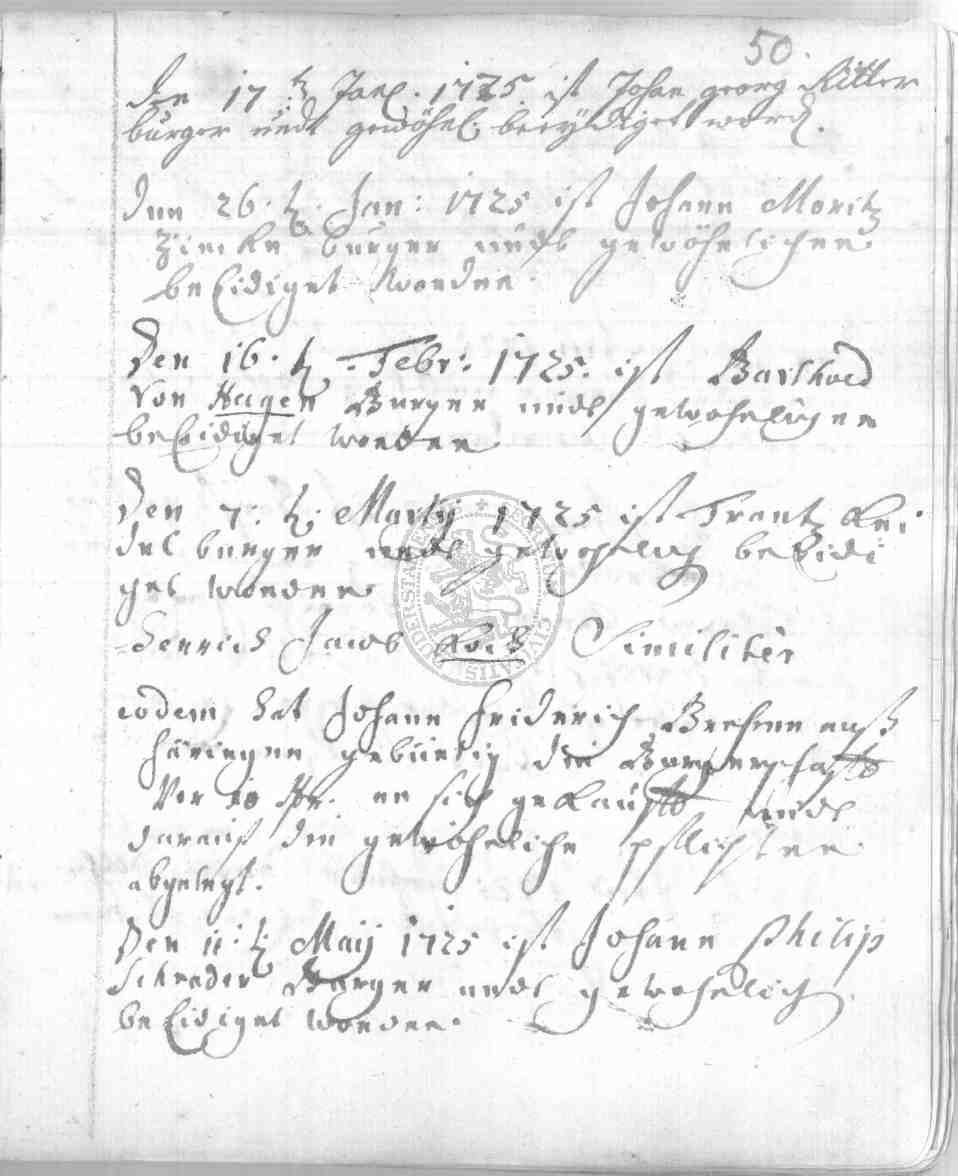 50.
Den 17 t Janl. 1725 ist Johan georg Ritter
burger undt gewöhnl. beeydiget word.
Den 26. t. Jan: 1725 ist Johann Moritz
Zincke burger undt gewöhnlichen
beEidiget worden.
Den 16. t. Febr: 1725. ist Barthold
Von Hagen Burger undt gewohnlichen
beEidiget worden.
Den 7. t. Martij 1725 ist Frantz
burger undt gewohnlich beEidi
get worden
Henrich Jacob Similiter
eodem hat Johann Friderich auß
gebürtig die Burgerschafft
Vor an sich gekaufft undt
darauf die gewöhnliche pflichten
abgelegt.
Den 11. t. Maij 1725 ist Johann Philip
Schrader Burger undt gewohnlich
beEidiget worden.